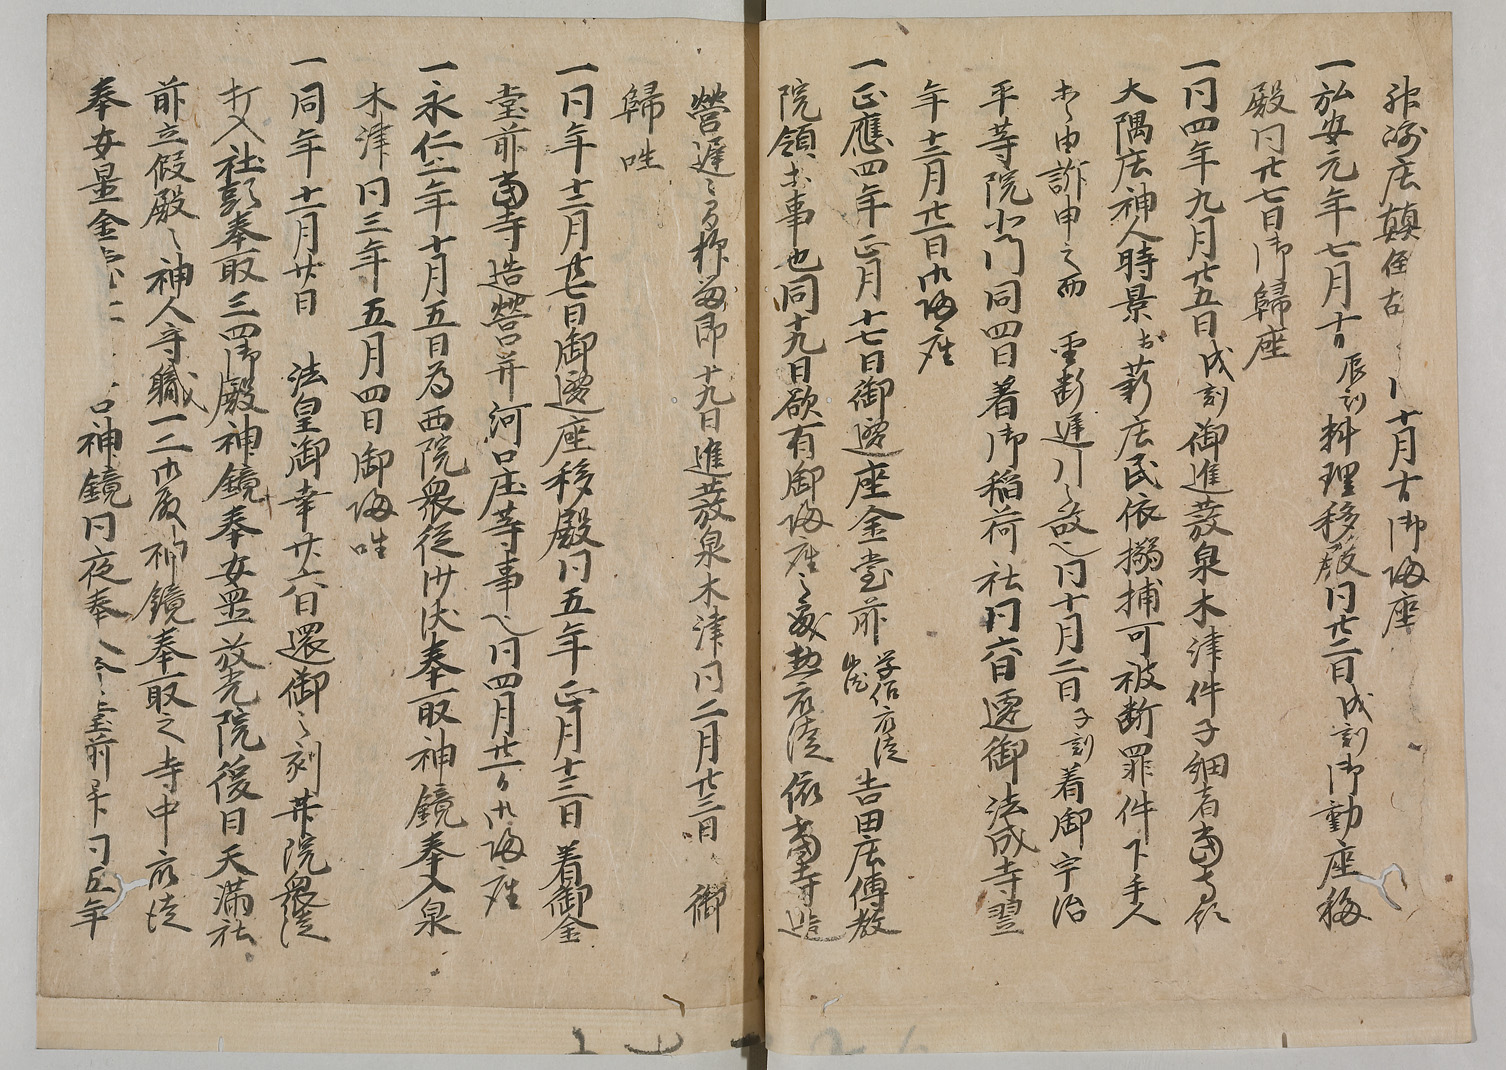 庄顛倒故 十月 日御帰座
一弘安元年七月十日辰刻料理移殿同廿二日戌刻御動座移
殿同廿七日御歸座
一同四年九月廿五日戌刻御進發泉木津件子細者當寺領
大隅庄神人時景於薪庄民依搦捕可被断罪件下手人
之由訴申之而 聖断遅引之故也同十月二日子刻着御宇治
平等院北門同四日着御稲荷社同六日遷御法成寺翌
年十二月廿一日御帰座
一正應四年正月十七日御遷座金堂前学侶衆徒 吉田庄傳教
院領等事也同十九日欲有御帰座之處勲衆徒依當寺造
營遅之由称留即十九日進發泉木津同二月廿三日 御
歸座
一同年十二月廿七日御遷座移殿同五年正月十三日着御金
堂前當寺造營并河口庄等事也同四月廿一日御帰座
一永仁二年十月五日為西院衆徒沙汰奉取神鏡奉入泉
木津同三年五月四日御帰座
一同年十一月廿日 法皇御幸廿六日還御之刻 院衆徒
打入社頭奉取三四御殿神鏡奉安置放光院後日天滿社
前立假殿之神人守職一二御殿神鏡奉取之寺中衆徒
奉安置金 神鏡同夜奉 堂前 同五年